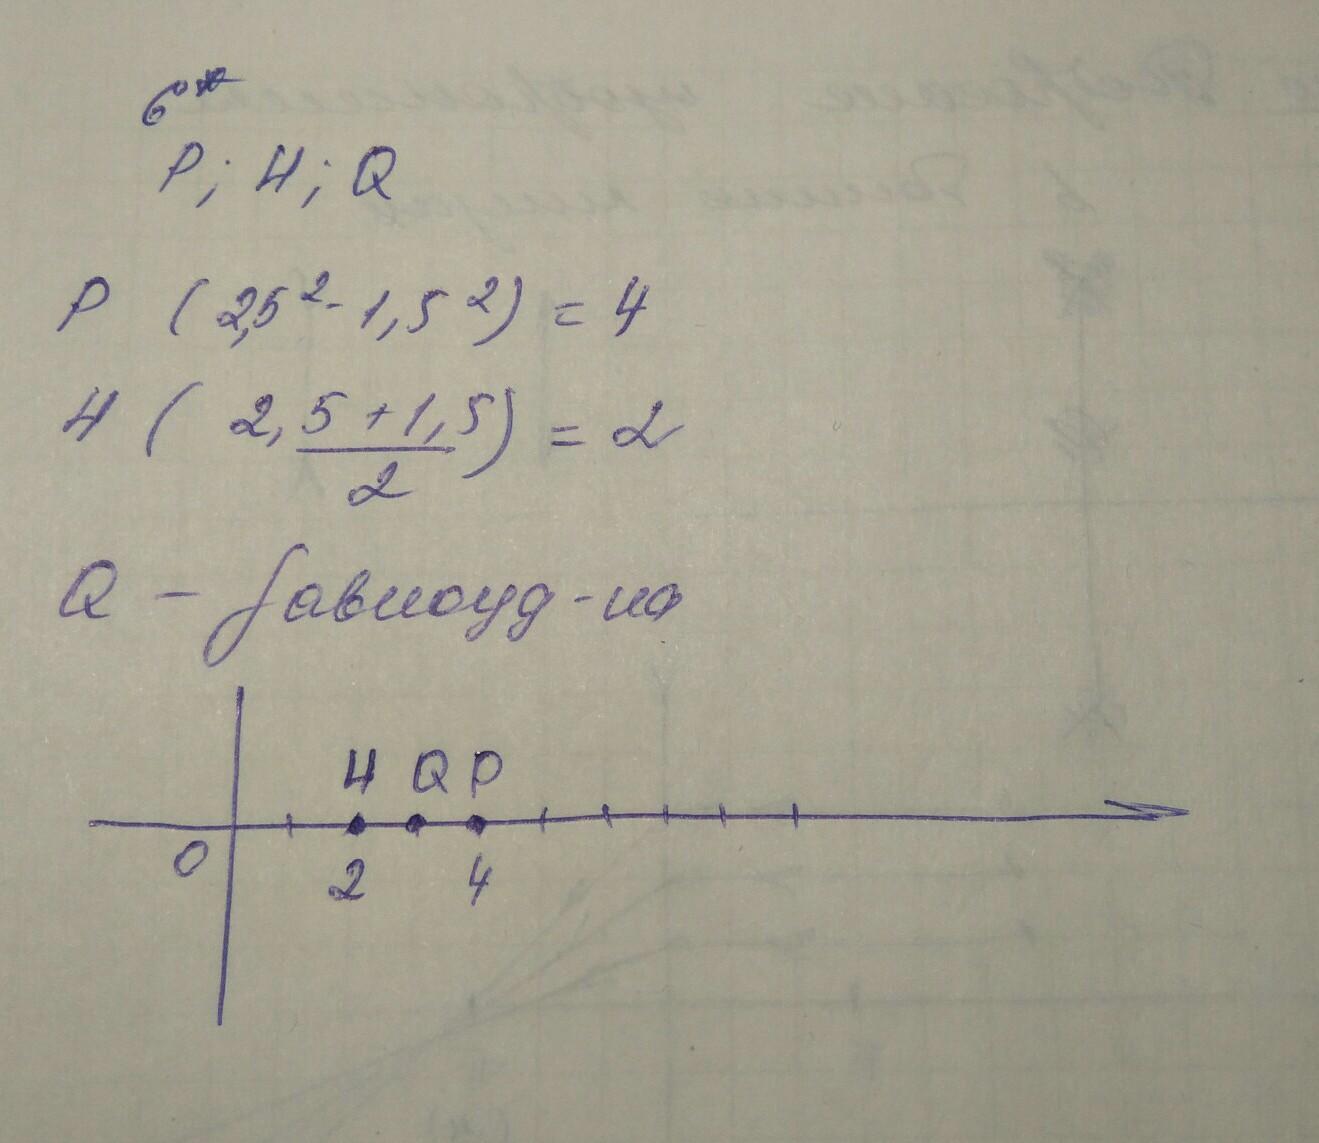 6**
P; H; Q
P (2,5² - 1,5²) = 4
H (2,5+1,5/2) = 2
Q - равноуд-на
H Q P
0 2 4